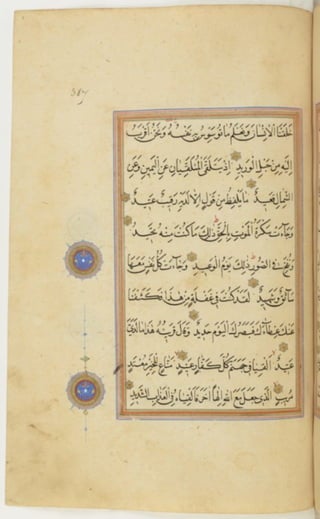 خلقنا الانسان ونعلم ما توسوس به نفسه ونحن اقرب
اليه من حبل الوريد اذ يتلقى المتلقيان عن اليمين وعن
الشمال قعيد ما يلفظ من قول الا لديه رقيب عتيد
وجاءت سكرة الموت بالحق ذلك ما كنت منه تحيد
ونفخ في الصور ذلك يوم الوعيد وجاءت كل نفس معها
سائق وشهيد لقد كنت في غفلة من هذا فكشفنا
عنك غطاءك فبصرك اليوم حديد وقال قرينه هذا ما لدي
عتيد القيا في جهنم كل كفار عنيد مناع للخير معتد
مريب الذي جعل مع الله الها آخر فالقياه في العذاب الشديد